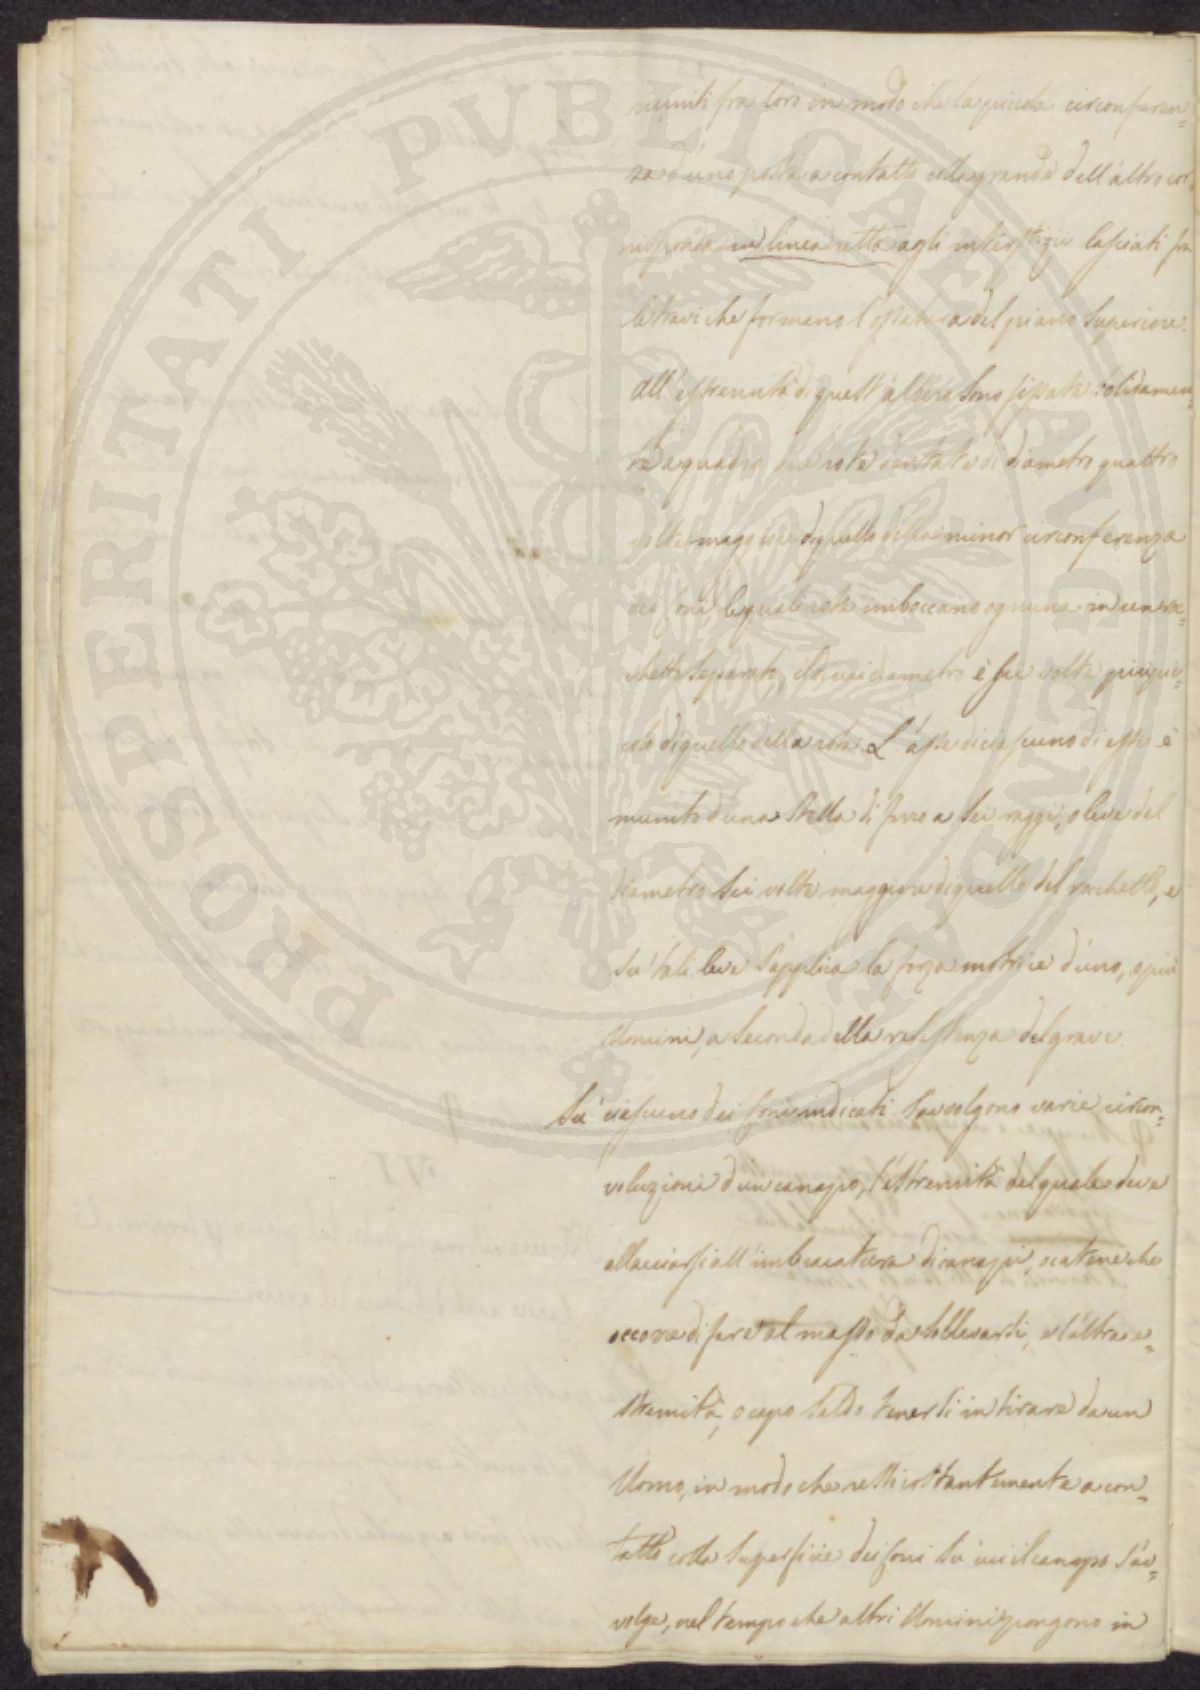 PROSPERITATI PVBLICAE AVGENDAE
muniti fra loro in modo che la piccola circonferen=
za d'uno posta a contatto colla grande dell'altro cor
risponda in linea retta agli interstizii lasciati fra
le travi che formano l'ossatura del piano superiore.
All'estremità di quest'albero sono fissate solidamen=
te a quadro due rote dentate di diametro quattro
volte maggiore di quello della minor circonferenza
dei coni, le quali rote imboccano ognuna in un ro
chetto separato, il cui diametro è sei volte più pic=
colo di quello della rota. L'asse di ciascuno di essi è
munito d'una stella di ferro a sei raggi, o leve del
diametro sei volte maggiore di quello del rochetto, e
su tali leve s'applica la forza motrice d'uno, o più
Uomini, a seconda della resistenza del grave.
Su ciascuno dei coni indicati s'avvolgono varie circon=
voluzioni d'un canapo, l'estremità del quale deve
allacciarsi all'imbracatura di canapi, o catene che
occorre di fare al masso da sollevarsi, e l'altra e=
stremità, o capo saldo tenersi in tirare da un
Uomo, in modo che resti costantemente a con=
tatto colla superficie dei coni su cui il canapo s'av=
volge, nel tempo che altri Uomini pongono in